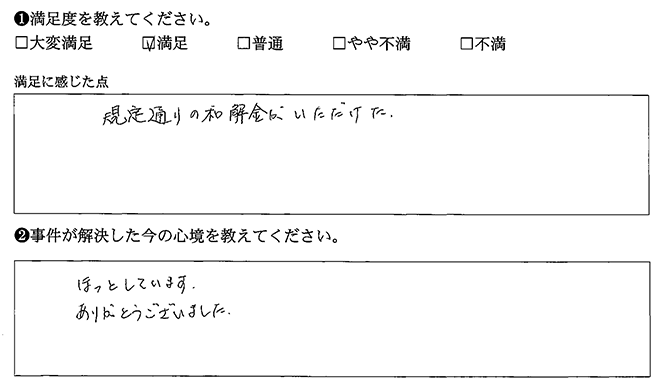 ❶満足度を教えてください。
□大変満足 ☑満足 □普通 □やや不満 □不満
満足に感じた点
規定通りの和解金がいただけた.
❷事件が解決した今の心境を教えてください。
ほっとしています.
ありがとうございました.